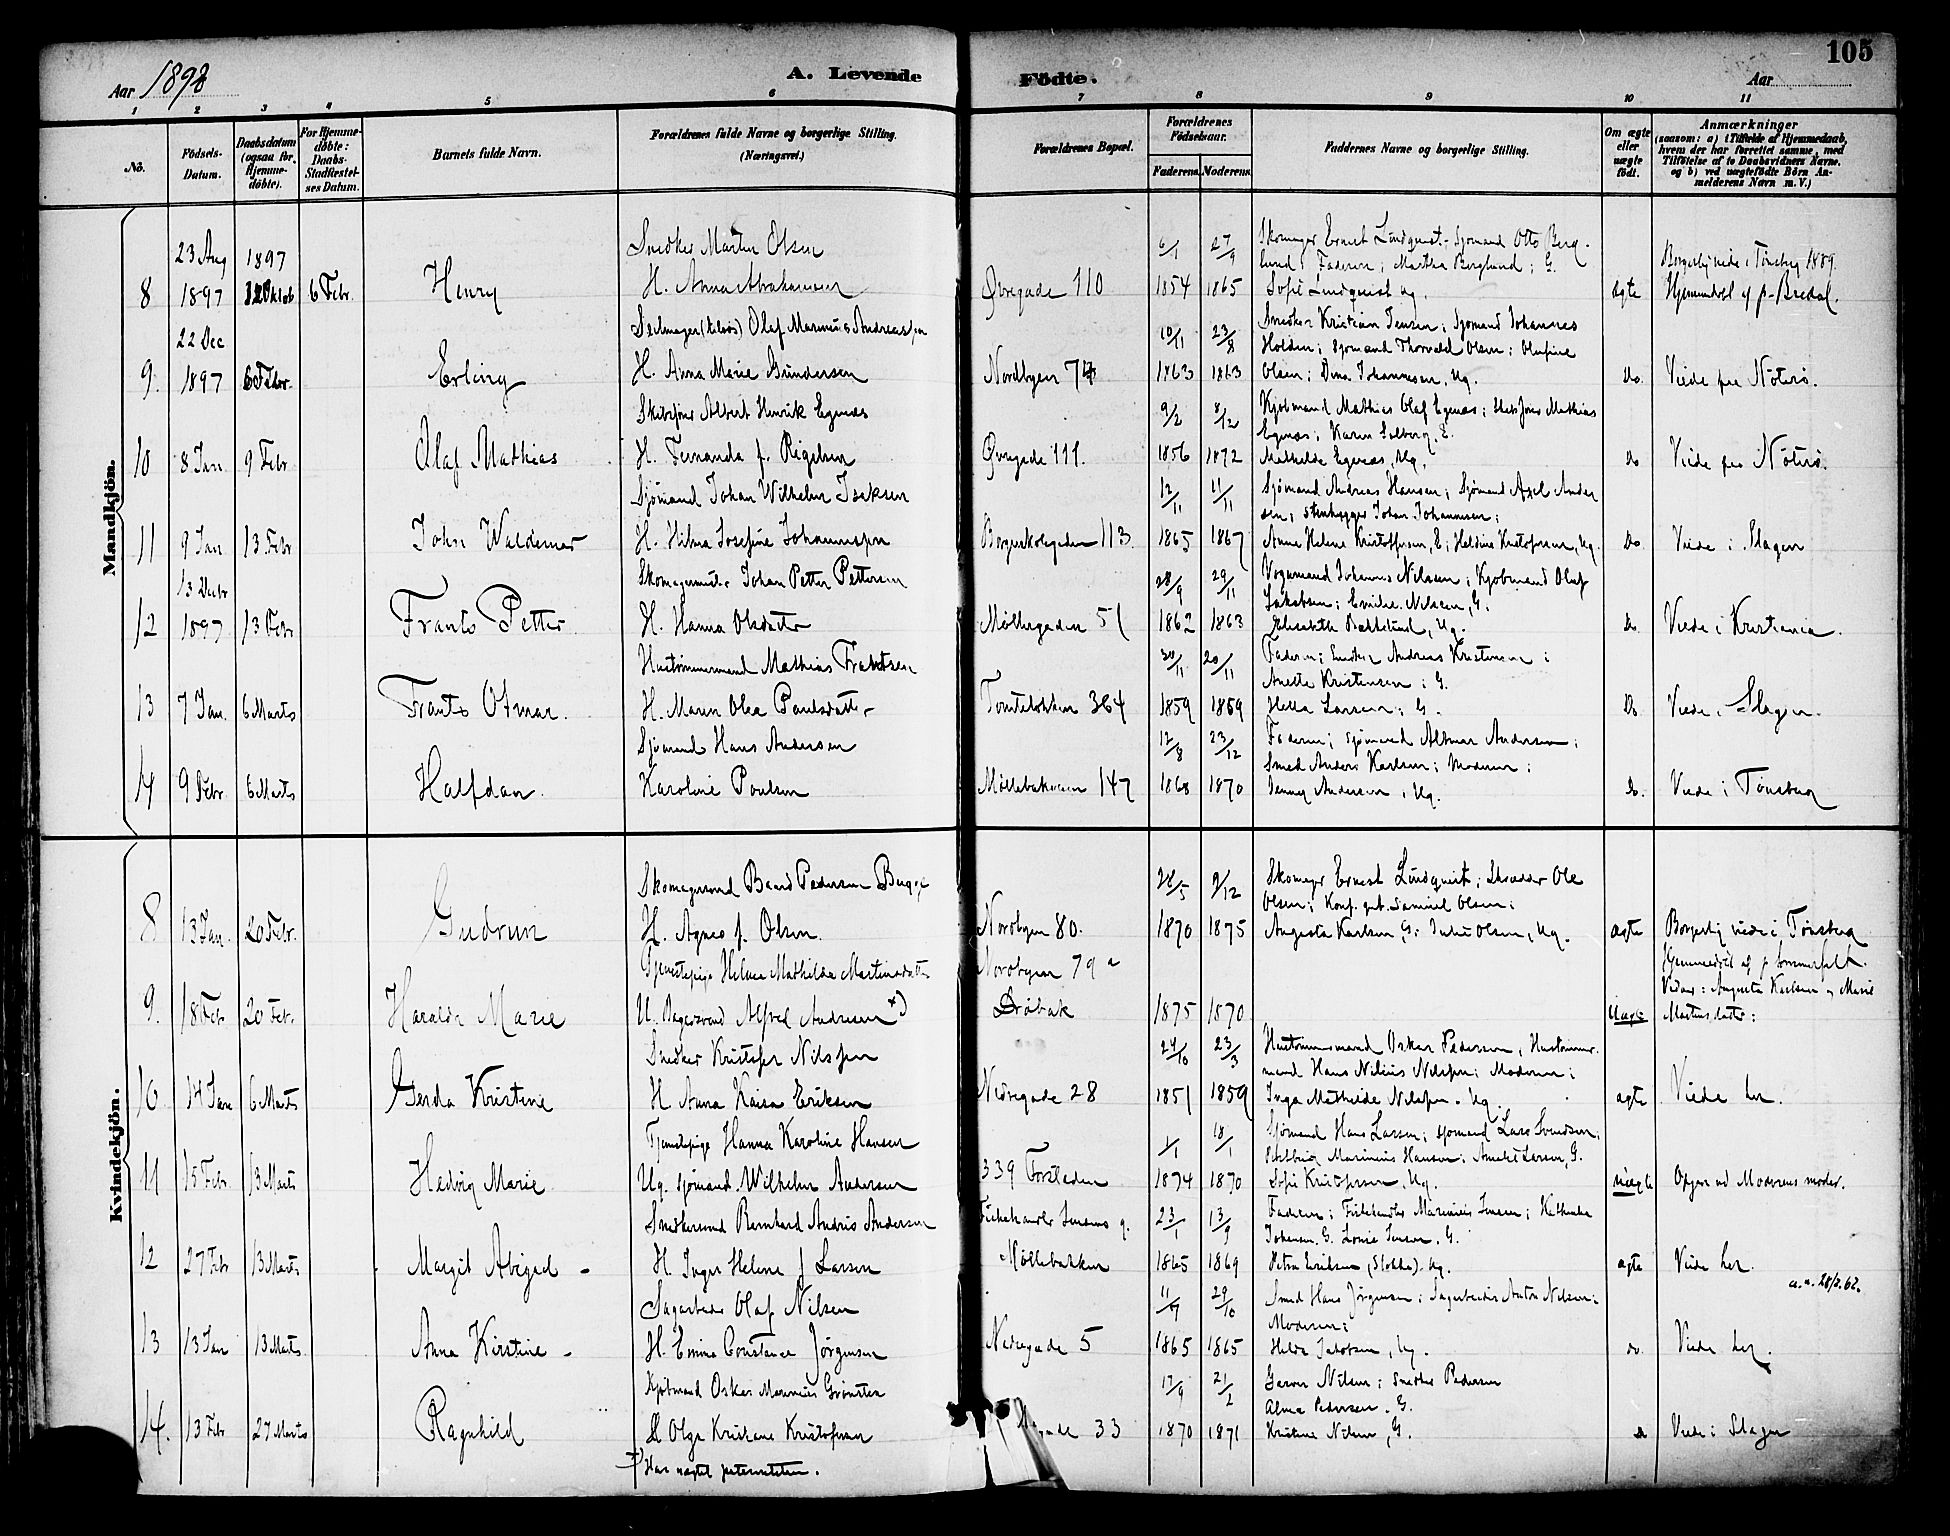 105
Aar 1898
A. Levende Födte.
Aar
1 2 3 4 5 6 7 8 9 10 11
No.
Födsels-Datum.
Daabsdatum (ogsaa for Hjemme-döbte).
For Hjemme-döbte: Daabs-Stadfæstel-ses Datum.
Barnets fulde Navn.
Forældrenes fulde Navne og borgerlige Stilling.
(Næringsvei.)
Forældrenes Bopæl.
Forældrenes Födselsaar.
Faderens. Moderens.
Faddernes Navne og borgerlige Stilling.
Om ægte eller uægte födt.
Anmærkninger
(saasom: a) i Tilfælde af Hjemmedaab, hvem der har forrettet samme, med Tilföielse af to Daabsvidners Navne. og b) ved uægtefödte Börn An-melderens Navn m.V.)
Mandkjön.
8 23 Aug 1897 12 Oktob 1897 6 Febr. Henry
Snedker Martin Olsen
H. Anna Abrahamsen
Øvregade 110 6/1 1854 27/9 1865
Skomager Ernst Lindquist, Sjomand Otto Berg-
lund; Faderen; Martha Berglund; G.
Sofie Lindquist Ug.
ægte
Borgerlig viede i Tønsberg 1889.
Hjemmedøbt af p. Bredal.
9. 22 Dec 1897 6 Febr. Erling
Seilmager Olaf Marinius Andreassen
H. Anna Marie Gundersen
Nordbyen 74 10/11 1863 23/8 1863
Snedker Kristian Jensen; Sjomand Johannes
Holden; Sjomand Thorvald Olsen; Olufine
Olsen; Dina Johannesen, Ug.
Do. Viede paa Nøterø.
10 8 Jan 9 Febr Olaf Mathias
Skibsfører Albert Henrik Egenæs
H. Fernanda f. Rigelsen
Øvregade 111. 9/2 1856 8/12 1872
Kjøbmand Mathias Olaf Egenæs; Mathias
Egenæs; Karen Solberg, E.
Mathilde Egenæs, Ug.
Do Viede paa Nøterø.
11 9 Jan 13 Febr John Waldemar
Sjømand Johan Wilhelm Isaksen
H. Hilma Josefine Johannessen
Borgerskolegaden 113 12/11 1865 11/11 1867
Sjømand Andreas Hansen; Sjømand Axel Ander
sen; Stenhugger Johan Johannesen;
Anne Helene Kristoffersen, E; Heldine Kristofersen, Ug.
Do. Viede i Slagen
12 13 Decbr 1897 13 Febr Frants Petter
Skomagermester Johan Petter Pettersen
H. Hanna Olsdatter
Møllegaden 51 28/9 1862 29/11 1863
Vognmand Johannes Nilsen; Kjøbmand Oluf
Jakobsen; Emilie Nilsen, G.
Elisabeth, Ug.
Do. Viede i Kristiania.
13 7 Jan. 6 Marts Frants Otmar.
Hustømmermand Mathias Frantsen
H. Maren Olea Paulsdatter
Tomteløkken 364 30/11 1859 20/11 1859
Faderen; Snedker Andreas Kristensen;
Anette Kristensen; G.
Hella Larsen; G.
Do Viede i Slagen.
14 9 Febr. 6 Marts Halfdan.
Sjømand Hans Andersen
Karoline Poulsen
Møllebakken 147 12/8 1868 23/12 1870
Faderen; Sjømand Altmar Andersen;
Smed Anders Karlsen; Moderen;
Jenny Andersen, Ug.
Do. Viede i Tønsberg
Kvindekjön.
8 13 Jan. 20 Febr. Gudrun
Skomagersvend Baard Pedersen Bugge
H. Agnes f. Olsen.
Nordbyen 80. 28/5 1870 9/12 1875
Skomager Ernest Lindquist; Skrædder Ole
Olsen; Konf. gut. Samuel Olsen;
Augusta Karlsen, G; Julie Olsen, Ug.
ægte Borgerlig viede i Tønsberg
9. 18 Febr 20 Febr. Haralda Marie
Tjenestepige Helene Mathilde Martinsdatter
U. Bagersvend Alfred Andresen x)
Nordbyen 79 a
Drøbak 1875 1870
Uægte
Hjemmedøbt af p. Sommerfelt.
Vidner: Augusta Karlsen og Marie
Martinsdatter:
10 14 Jan 6 Marts Gerda Kristine
Snedker Kristofer Nilssen
H Anna Kaisa Eriksen
Nedregade 28 24/10 1851 23/3 1859
Hustømmermand Oskar Pedersen, Hustømmer-
mand Hans Nilius Nilssen; Moderen;
Inga Mathilde Nilssen. Ug.
ægte Viede her.
11 15 Febr. 13 Marts Hedvig Marie
Tjenestepige Hanna Karoline Hansen
Ug. Sjømand Wilhelm Andersen
339 Forstaden 1/1 1874 18/1 1870
Sjømand Hans Larsen; Sjømand Lars Svendsen;
Marinius Hansen; Amalie Larsen, G.
Sofie Kristofersen, Ug.
uægte Opgav ved Moderens moder.
12 27 Febr 13 Marts Margit Abigael -
Snedkersvend Bernhard Andris Andersen
H. Inger Helene f Larsen
Fiskehandler Jensens g.
Møllebakken 23/1 1865 13/9 1869
Faderen; Fiskehandler Marinius Jensen; Kathinka
Johansen. G. Lovise Jensen, G.
Petra Eriksen (Stokke). Ug.
ægte Viede her.
a.a. 28/3.62.
13 13 Jan 13 Marts Anna Kirstine -
Sagarbeider Olaf Nilsen
H. Emma Constance Jørgensen
Nedregade 5 11/9 1865 29/10 1865
Smed Hans Jørgensen; Sagarbeider Anton Nilsen;
Moderen;
Hilda Jakobsen, Ug.
do. Viede her.
14. 13 Febr 27 Marts Ragnhild
Kjøbmand Oskar Marinius Grønsten
H Olga Kristiane Kristofersen
33 17/9 1870 21/2 1871
Garver Nilsen; Snedker Pedersen
Alma Pedersen. G.
Kristine Nilsen, G.
Do Viede i Slagen
x) Har nægtet paterniteten.